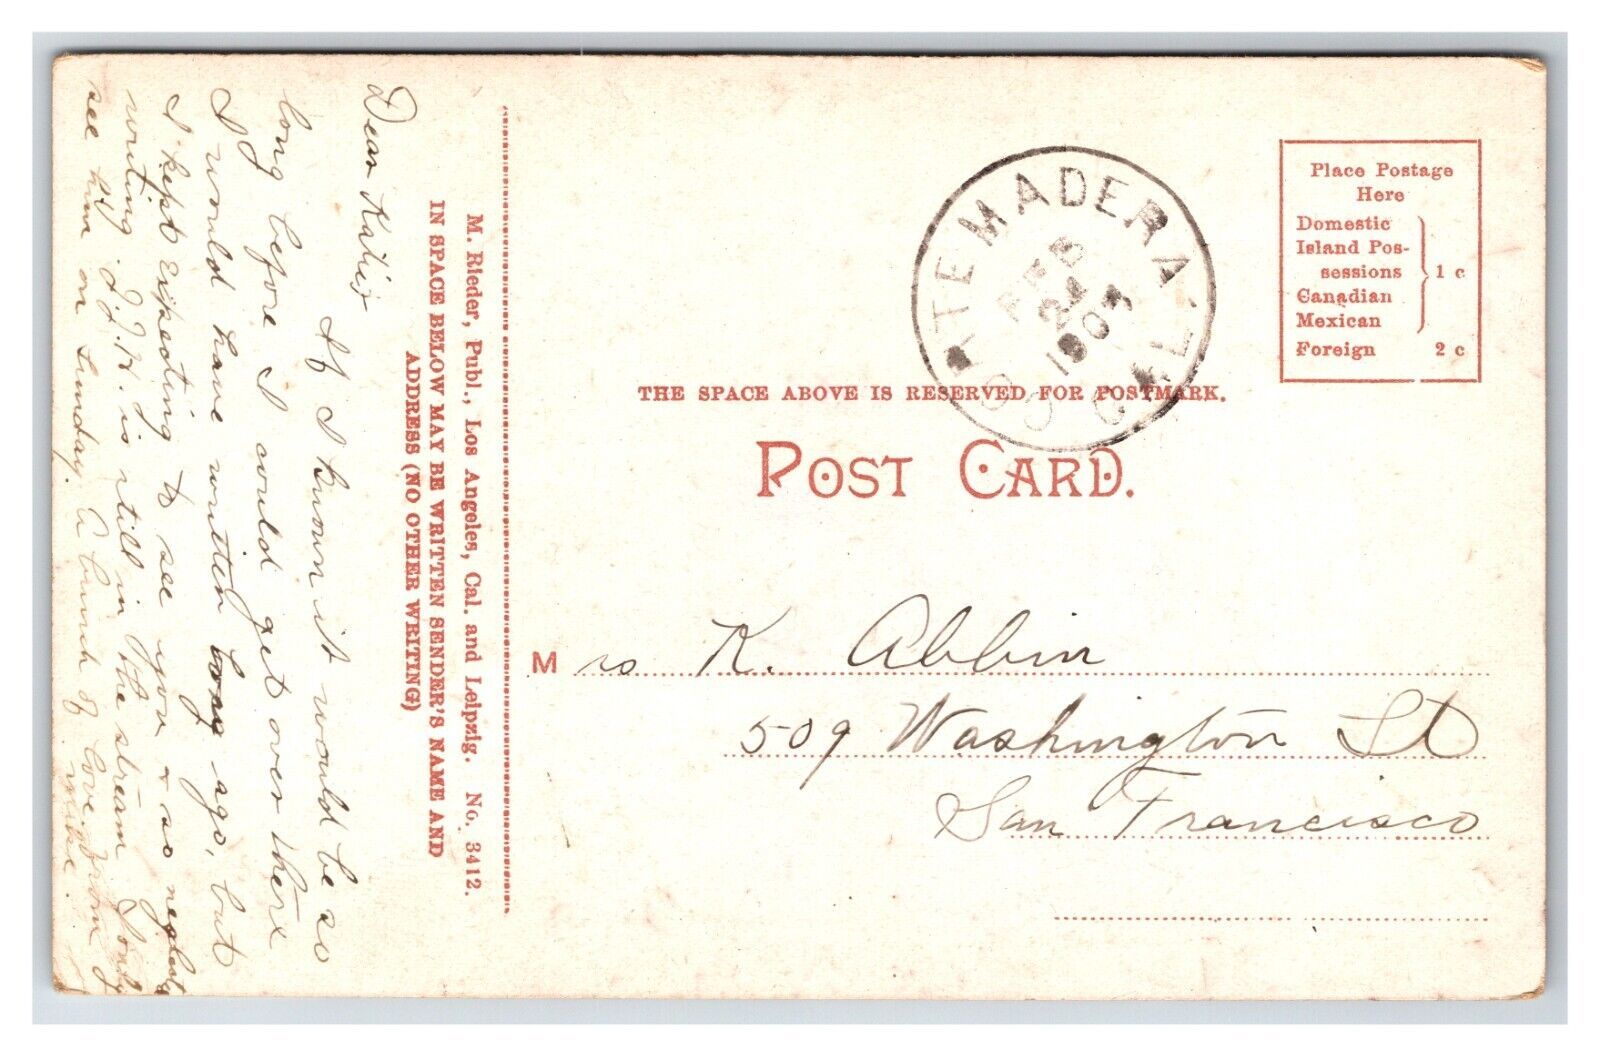 Dear Katie
If I known it would be so
long before I could get over there
I would have written long ago, but
I kept expecting to see you & so neglected
writing. J.H. is still in the stream. I only
see him on Sunday. A bunch of love from
M. Rieder, Publ., Los Angeles, Cal. and Leipzig. No. 3412.
IN SPACE BELOW MAY BE WRITTEN SENDER'S NAME AND
ADDRESS (NO OTHER WRITING)
CORTE MADERA
FEB
24
1907
CAL.
Place Postage
Here
Domestic
Island Pos-
sessions
Canadian
Mexican
1 c
Foreign 2 c
THE SPACE ABOVE IS RESERVED FOR POSTMARK.
POST CARD.
Mrs K. Abbin
509 Washington St
San Francisco